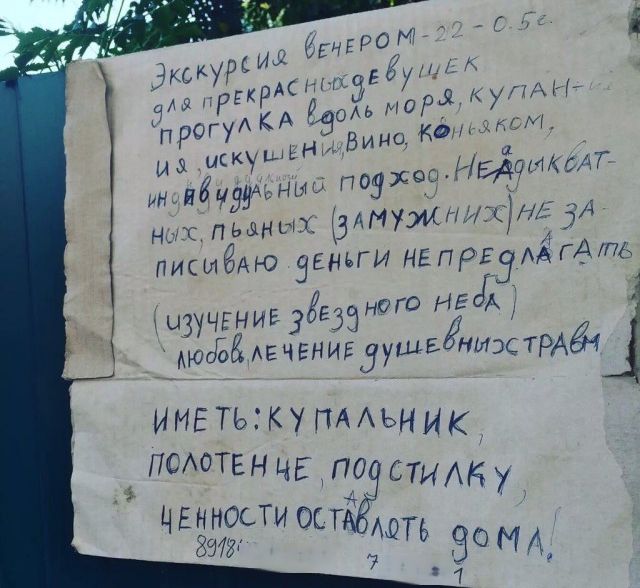 Экскурсия вечером - 22 - 0.5 г.
для прекрасных девушек
прогулка вдоль моря, купан-
ия, искушения, Вино, коньяком,
индивидуальный подход. Неадыкват-
ных, пьяных (замужних) не за-
писываю деньги не предлагать
(изучение звездного неба)
любовь, лечение душевных травм
иметь: купальник,
полотенце, подстилку,
ценности оставлять дома!
8918
7
1